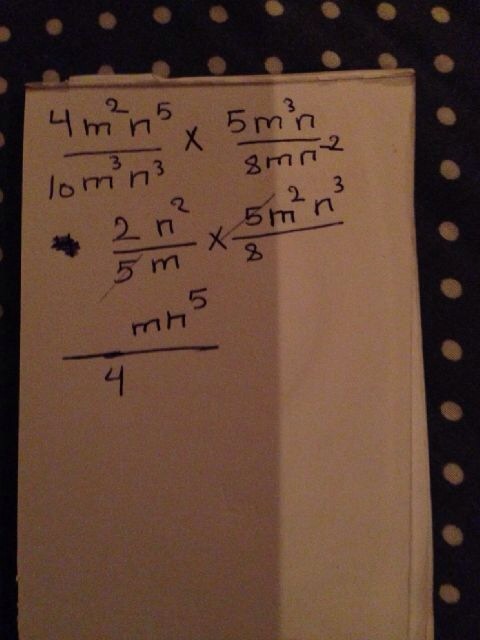 4m²n⁵/10m³n³ × 5m³n/8mn⁻²
2n²/5m × 5m²n³/8
mn⁵/4